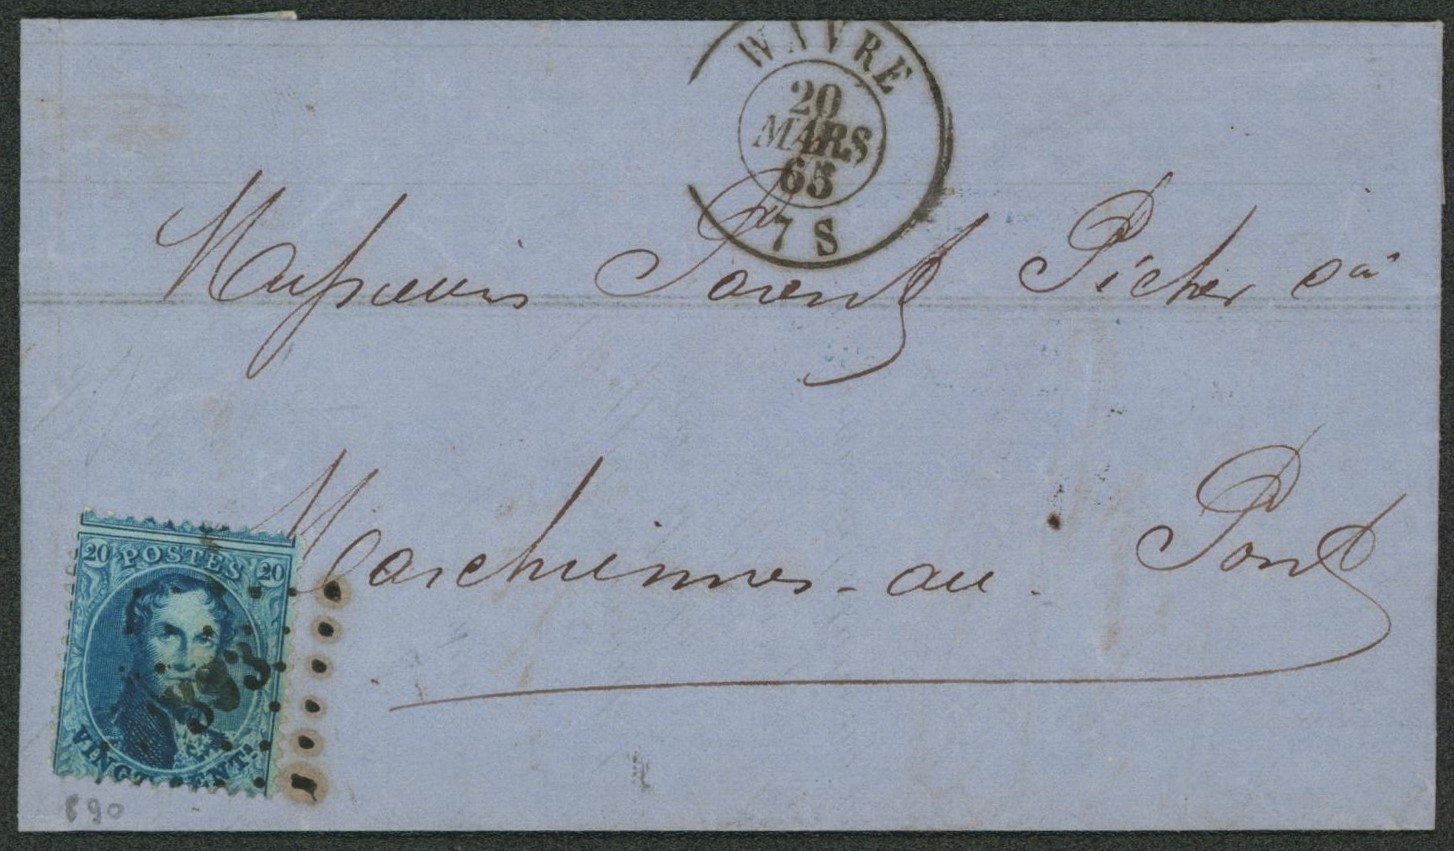 WAVRE
20
MARS
65
7 S
Messieurs Parent Picher &a
Marchiennes-au. Pont
20 POSTES 20
393
VINGT CENTS
890